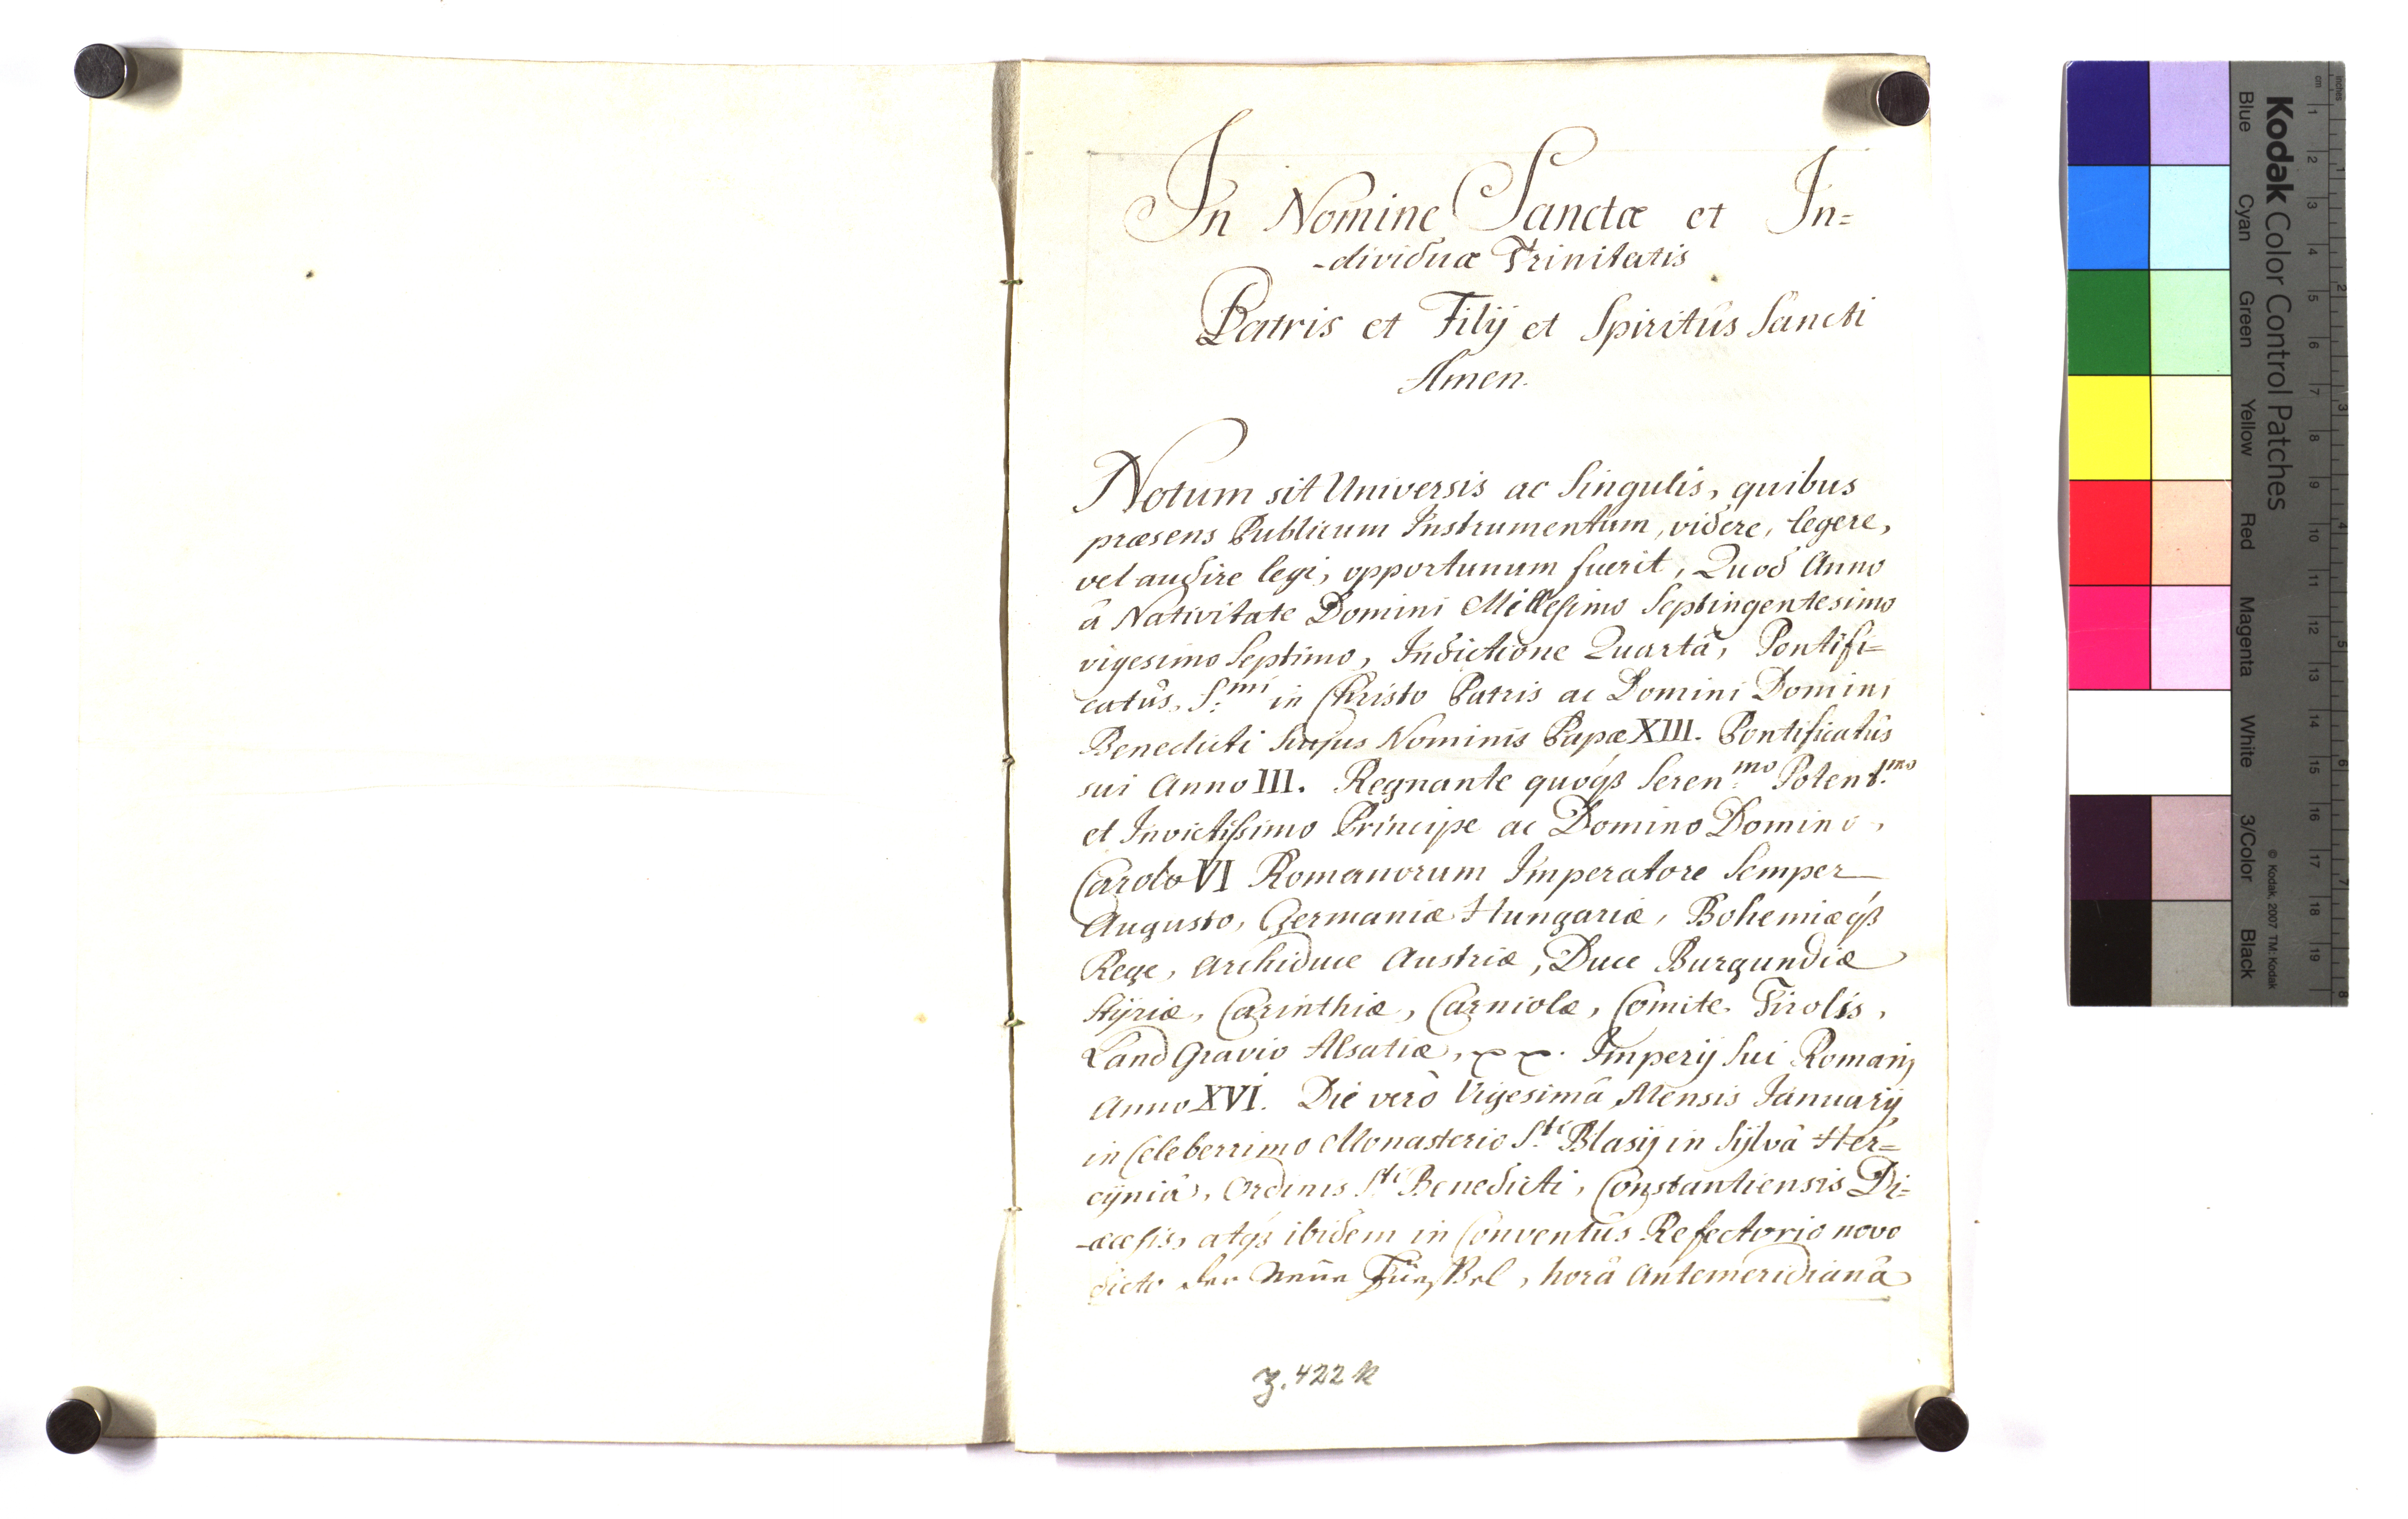 In Nomine Sanctæ et In=
-dividuæ Trinitatis
Patris et Filij et Spiritûs Sancti
Amen.
Notum sit Universis ac Singulis, quibus
præsens Publicum Instrumentum, videre, legere,
vel audire legi, opportunum fuerit, Quod Anno
â Nativitate Domini Millesimo Septingentesimo
vigesimo Septimo, Indictione Quartâ, Pontifi=
catûs, S:mi in Christo Patris ac Domini Domini
Benedicti hujus Nominis Papæ XIII. Pontificatûs
sui Anno III. Regnante quóqß Seren:mo Potent:mo
et Invictissimo Principe ac Domino Domino,
Carolo VI Romanorum Imperatore Semper
Augusto, Germaniæ Hungariæ, Bohemiæqß
Rege, Archiduce Austriæ, Duce Burgundiæ
Stÿriæ, Carinthiæ, Carniolæ, Comite Tirolis,
Land Gravio Alsatiæ, Imperij Sui Romani
Anno XVI. Die verò Vigesimâ Mensis Januarÿ
in Celeberrimo Monasterio S:ti Blasij in Sÿlvâ Her=
cÿniâ, Ordinis S:ti Benedicti, Constantiensis Di=
-æcesis, atqß ibidem in Conventûs Refectorio novo
dicto, horâ Antemeridianâ
Z. 422 k
Kodak Color Control Patches
Blue Cyan Green Yellow Red Magenta White 3/Color Black
© Kodak, 2007 TM: Kodak
inches 1 2 3 4 5 6 7 8
cm 1 2 3 4 5 6 7 8 9 10 11 12 13 14 15 16 17 18 19